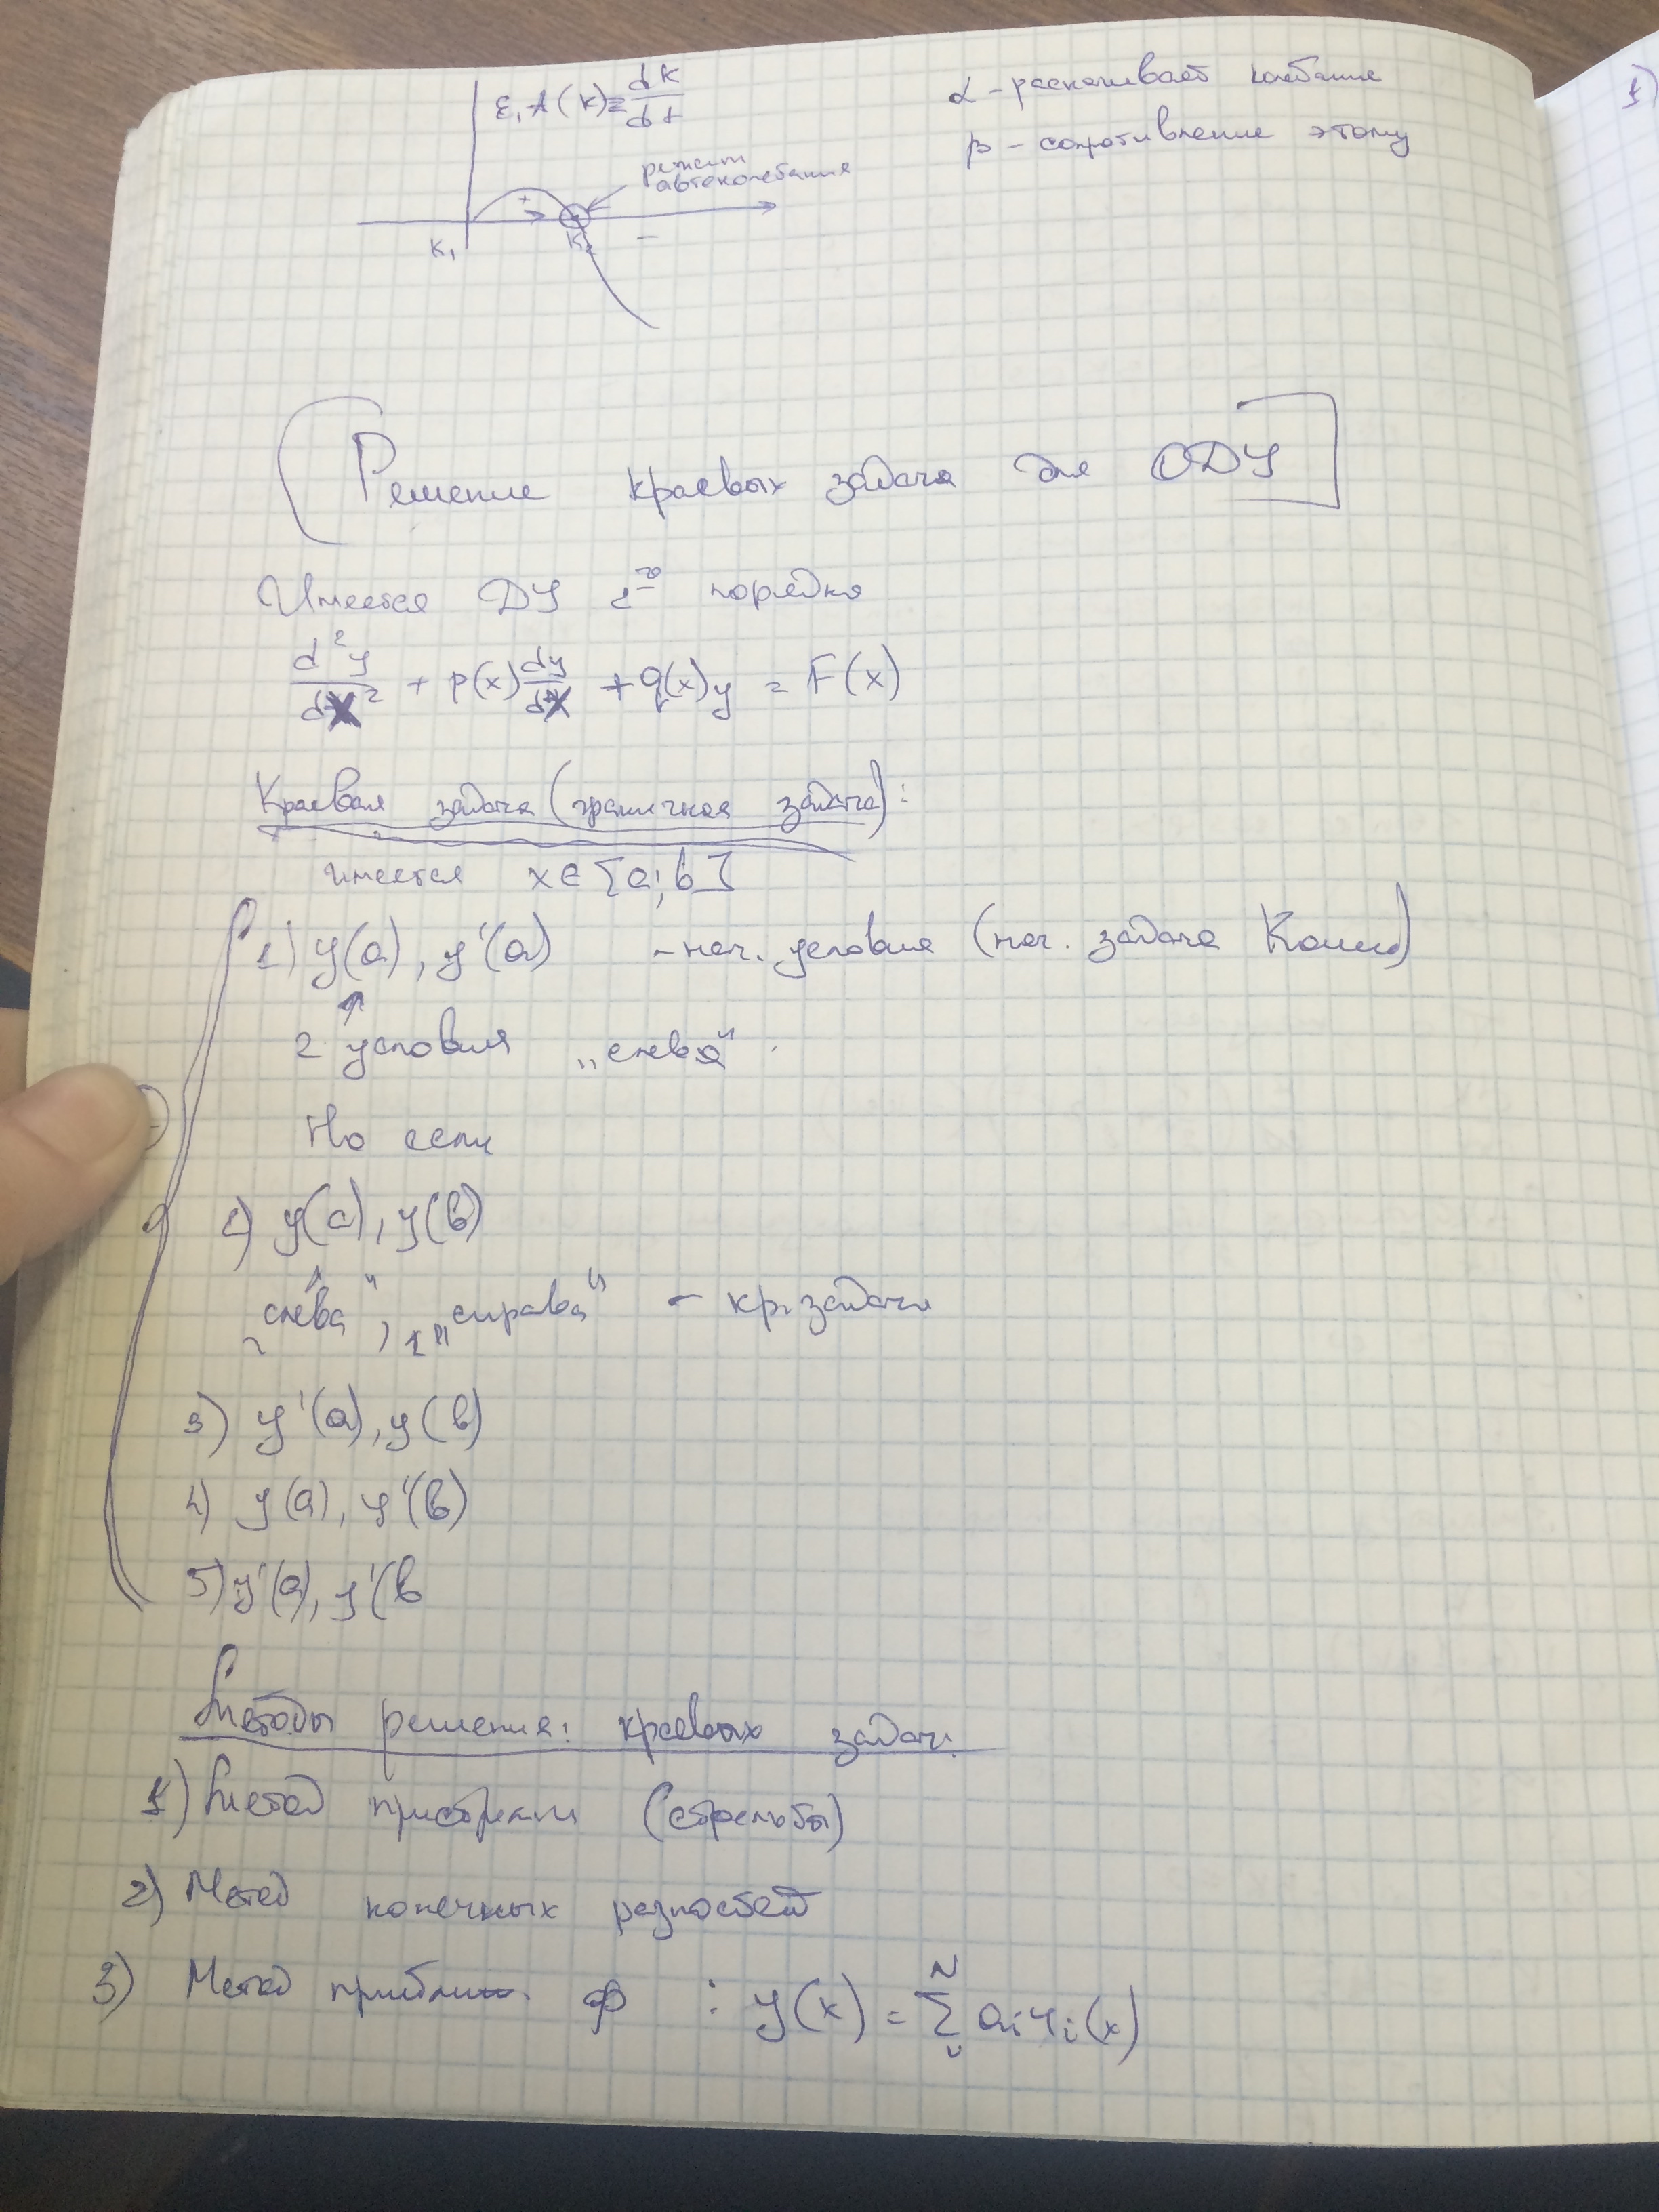 ε₁A(K) = dK/dt
α - раскачивает колебание
β - сопротивление этому
режим
автоколебания
+
K₁ K₂ -
Решение краевых задач для ОДУ
Имеется ДУ 2го порядка
d²y/dx² + p(x) dy/dx + q(x)y = F(x)
Краевая задача (граничная задача):
имеется x∈[a;b]
1) y(a), y'(a) - нач. условия (нач. задача Коши)
2 условия „слева"
Но если
2) y(a), y(b)
„слева", 1 „справа" - кр. задача
3) y'(a), y(b)
4) y(a), y'(b)
5) y'(a), y'(b
Методы решения: краевых задач:
1) Метод пристрелки (стрельбы)
2) Метод конечных разностей
3) Метод приближ. ф : y(x) = Σ N aᵢφᵢ(x)
1)